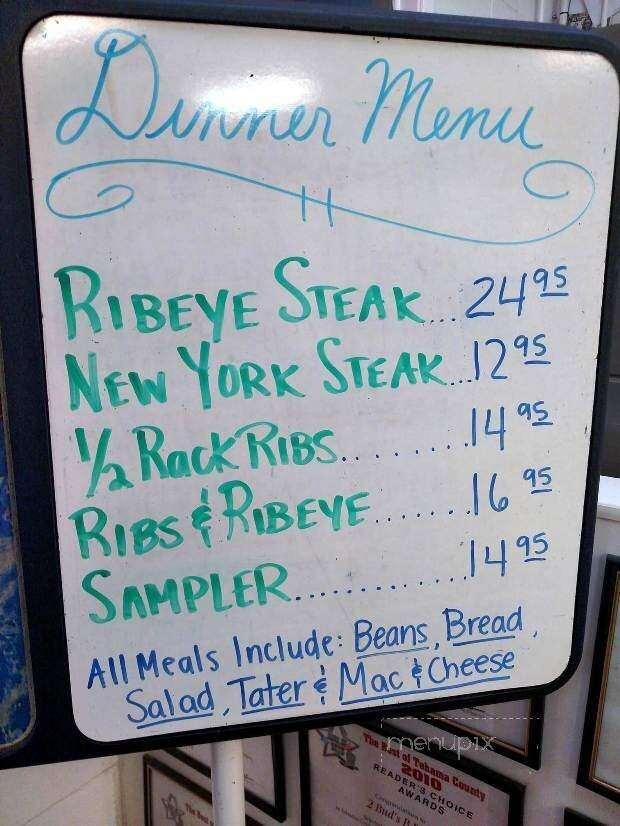 Dinner Menu
RIBEYE STEAK... 24 95
NEW YORK STEAK... 12 95
1/2 Rack RIBS......... 14 95
RIBS & RIBEYE....... 16 95
SAMPLER............. 14 95
All Meals Include: Beans, Bread,
Salad, Tater & Mac & Cheese
menupix
The Best of Tehama County
2010
READER'S CHOICE
AWARDS
2 Bud's